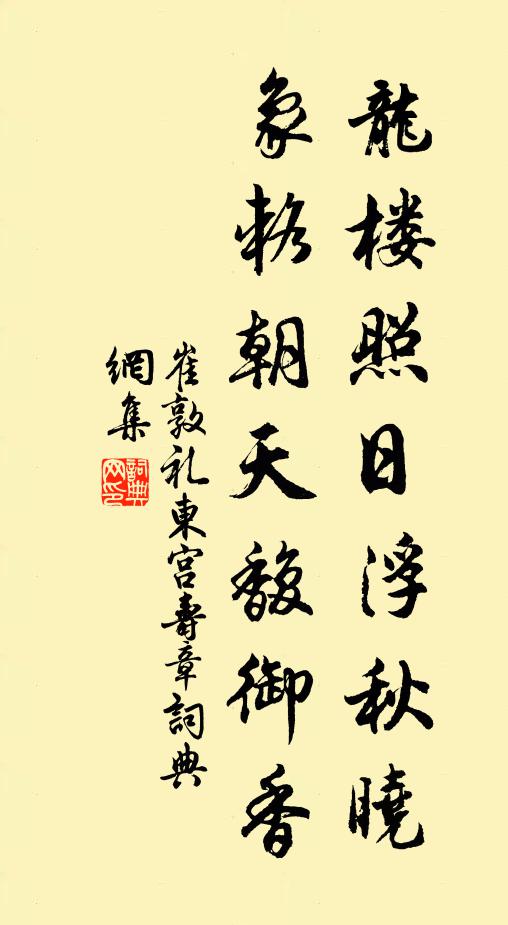 龍楼照日浮秋曉
象輅朝天馥御香
崔敦礼東宫壽章詞典
網集
詞典
网印